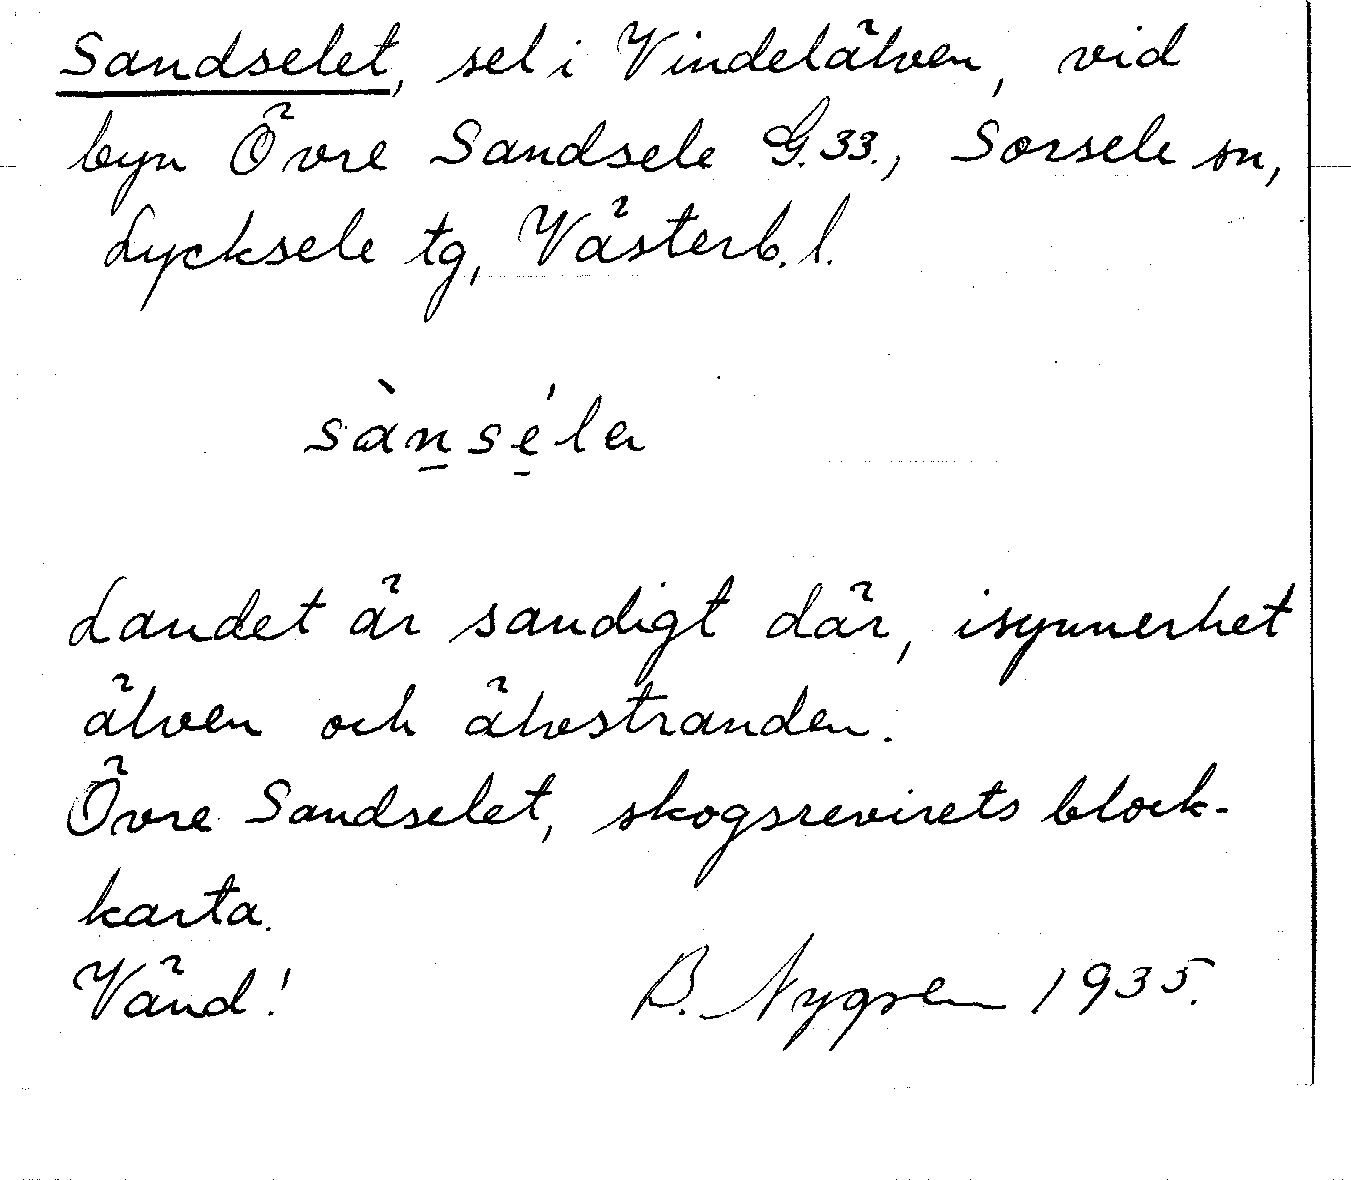 Sandselet, sel i Vindelälven, vid
byn Övre Sandsele G.33., Sorsele sn,
Lycksele tg, Västerb. l.
sàn̠sé̠la
Landet är sandigt där, isynnerhet
älven och älvstranden.
Övre Sandselet, skogsrevirets block-
karta.
Vänd!
B. Nygren 1935.